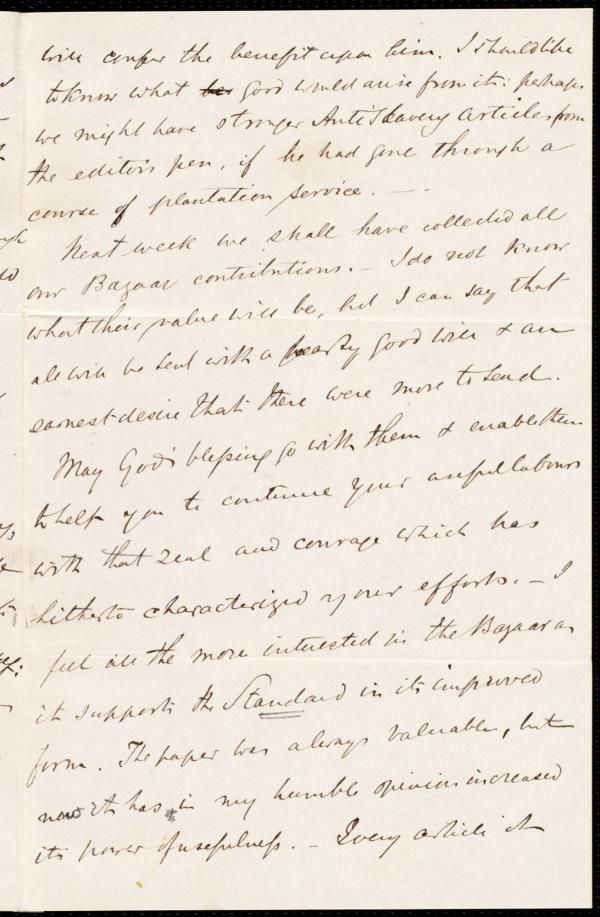 will confer the benefit upon him. I should like
to know what her good would arise from it: perhaps
we might have stronger AntiSlavery articles from
the editor's pen, if he had gone through a
course of plantation service. — -
Next week we shall have collected all
our Bazaar contributions. - I do not know
what their value will be, but I can say that
all will be sent with a hearty good will & an
earnest desire that there were more to send.
May God's blessing go with them & enable them
to help you to continue your useful labours
with that zeal and courage which has
hitherto characterized your efforts. - I
feel all the more interested in the Bazaar as
it supports the Standard in its improved
form. The paper was always valuable, but
now it has in my humble opinion increased
its power of usefulness. - Every article it